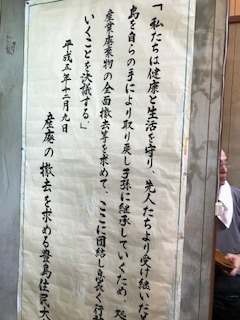 「私たちは健康と生活を守り、先人たちより受け継いだ
島を自らの手により取り戻し子孫に継承していくため、処
産業廃棄物の全面撤去等を求めて、ここに団結し息長く行
いくことを決議する。」
平成五年十二月九日
産廃の撤去を求める豊島住民大